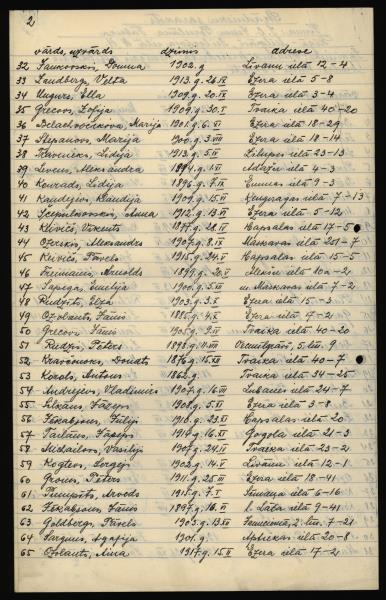 2
vārds, uzvārds dzimis adrese
32 Jankovskis, Donma 1902.g. Līvānu ielā 12-4
33 Landbergs, Velta 1913.g. 26.IX Ezera ielā 5-8
34 Ungurs, Ella 1909.g. 20.IX Ezera ielā 3-4
35 Grecovs, Zofija 1909.g. 30.I Tvaika ielā 40-20
36 Marija 1901.g. 6.VI Ezera ielā 18-29
37 Stepanovs, Marija 1900.g. 3.VIII Ezera ielā 18-14
38 Lidija 1913.g. 5.IV ielā 23-13
39 Līvens, Aleksandra 1894.g. 1.VI Adažu ielā 4-3
40 Konrads, Lidija 1896.g. 7.IX Emmas ielā 9-3
41 Klaudija 1909.g. 15.II Ķeizaragas ielā 7-13
42 Anna 1912.g. 13.VI Ezera ielā 5-12
43 Klēvičs, Vikents 1877.g. 28.IV Kapsalas ielā 17-5
44 Ozerskis, Aleksandrs 1907.g. 8.IX Maskavas ielā 251-7
45 Pāvels 1915.g. 24.V Kapsalas ielā 15-5
46 Freimanis, Arnolds 1899.g. 20.V ielā 10a-21
47 Sapega, Emilija 1900.g. 5.III m. Maskavas ielā 7-2
48 Rudzīts, Elza 1903.g. 3.X Ezera ielā 15-3
49 Ozolants, Jānis 1885.g. 4.X Ezera ielā 17-2
50 Grecovs Jānis 1905.g. 9.II Tvaika ielā 40-20
51 Rudzis, Pēters 1898.g. 11.VIII 5. lin. 9
52 Kravčenoks, Donāts 1876.g. 15.XII Tvaika ielā 40-7
53 Korols, Antons 1862.g. Tvaika ielā 34-25
54 Andrejevs, Vladimirs 1907.g. 16.VIII Lubanas ielā 24-7
55 Jāzeps 1908.g. 5.II Ezera ielā 3-8
56 Jēkabsons, Jūlijs 1910.g. 23.XI Kapsalas ielā 20
57 Jāzeps 1914.g. 16.XI Gogoļa ielā 21-3
58 Mihailovs, Vasilijs 1907.g. 24.IV Tvaika ielā 23-2
59 Rogtevs, Sergejs 1902.g. 14.V Līvānu ielā 12-1
60 Pēters 1911.g. 25.III Ezera ielā 18-41
61 Arveds 1915.g. 7.I ielā 6-16
62 Jēkabsons, Jānis 1897.g. 16.VI l. Lāča ielā 9-41
63 Goldbergs, Pāvels 1905.g. 13.XII 2. lin. 7-21
64 Agafija 1901.g. Aptiekas ielā 20-8
65 Ozolants, Aina 1917.g. 15.II Ezera ielā 17-2